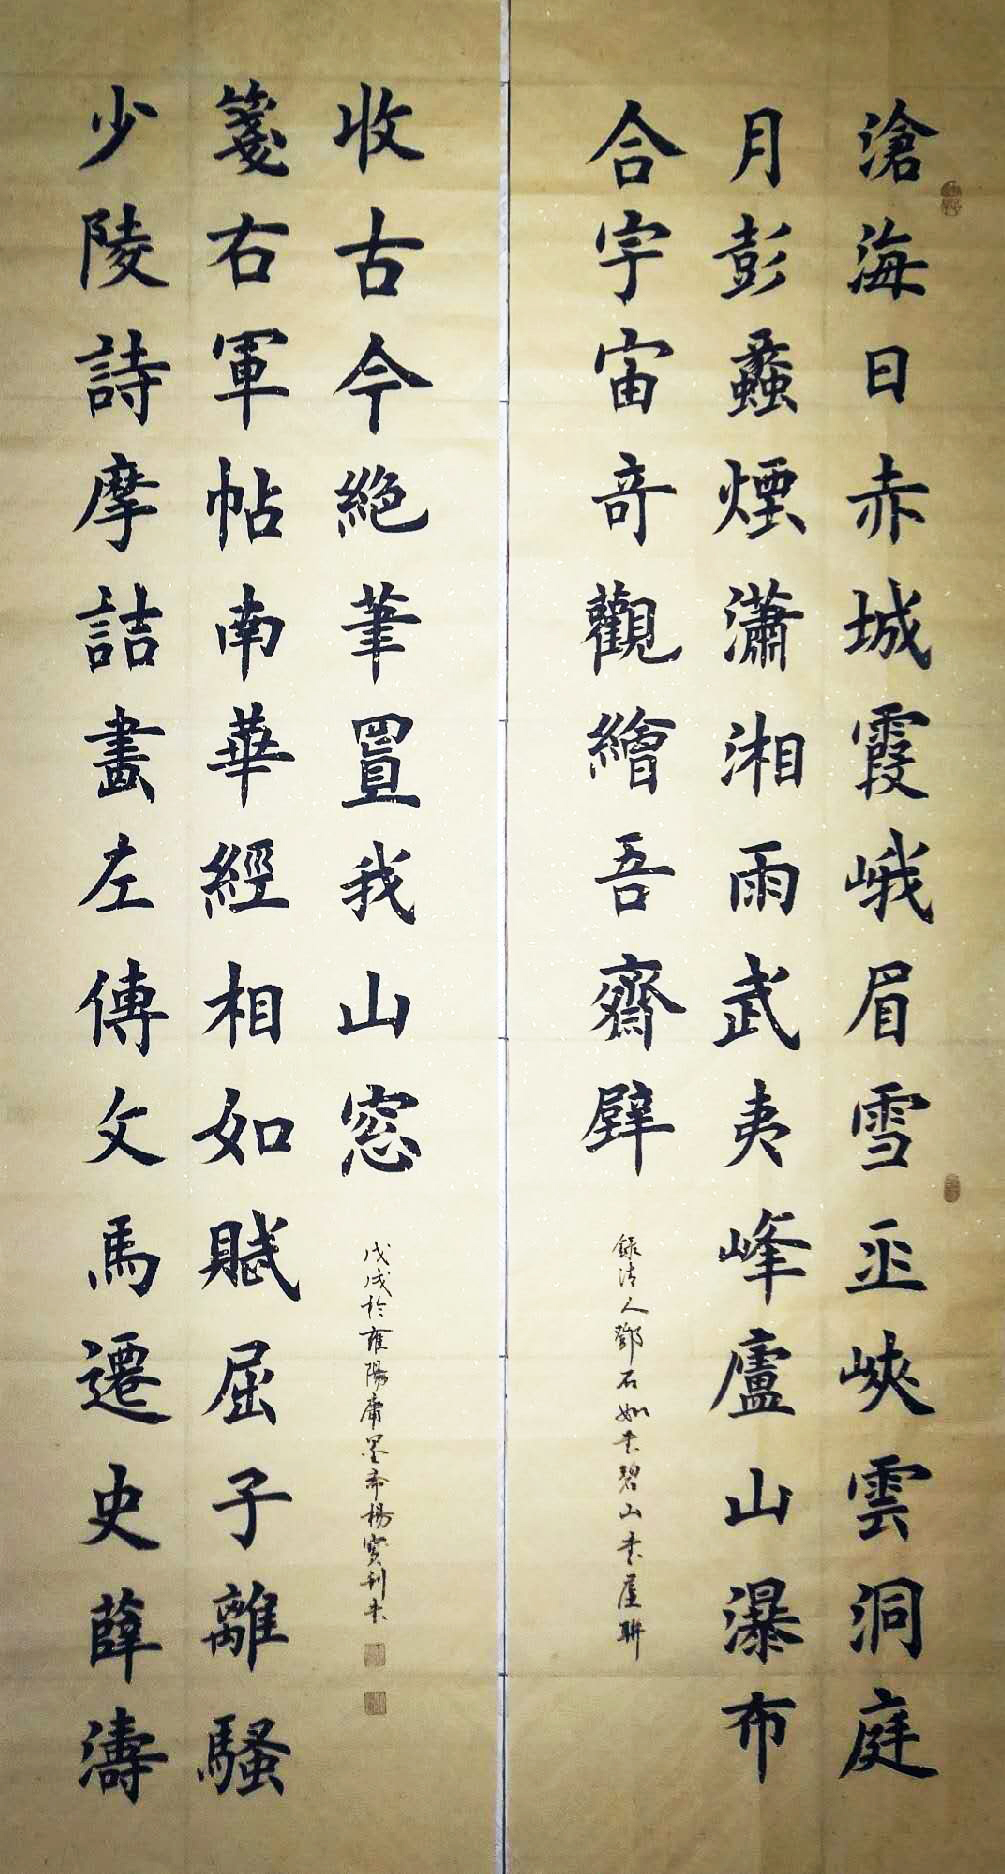 滄海日赤城霞峨眉雪巫峽雲洞庭
月彭蠡煙瀟湘雨武夷峰廬山瀑布
合宇宙奇觀繪吾齋壁
錄清人鄧石如书碧山书屋聯
少陵詩摩詰畫左傳文馬遷史薛濤
箋右軍帖南華經相如賦屈子離騷
收古今絕筆置我山窓
戊戌於雍陽庸墨斋楊寶利书